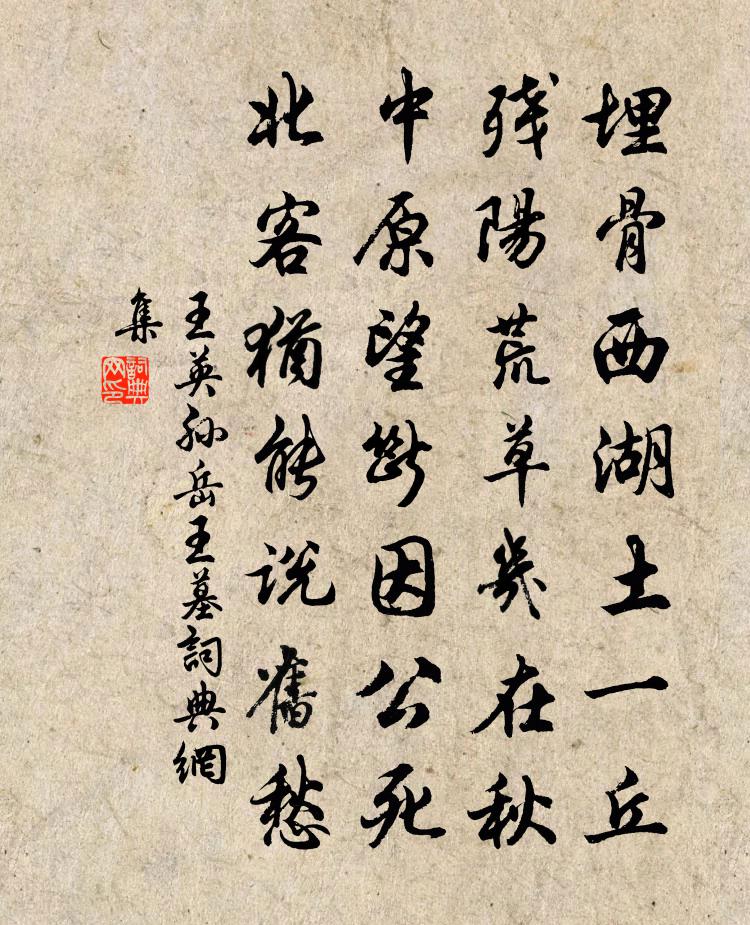 埋骨西湖土一丘
残陽荒草幾在秋
中原望断因公死
北客猶能説舊愁
王英孫岳王墓詞典網
集
詞典
网印